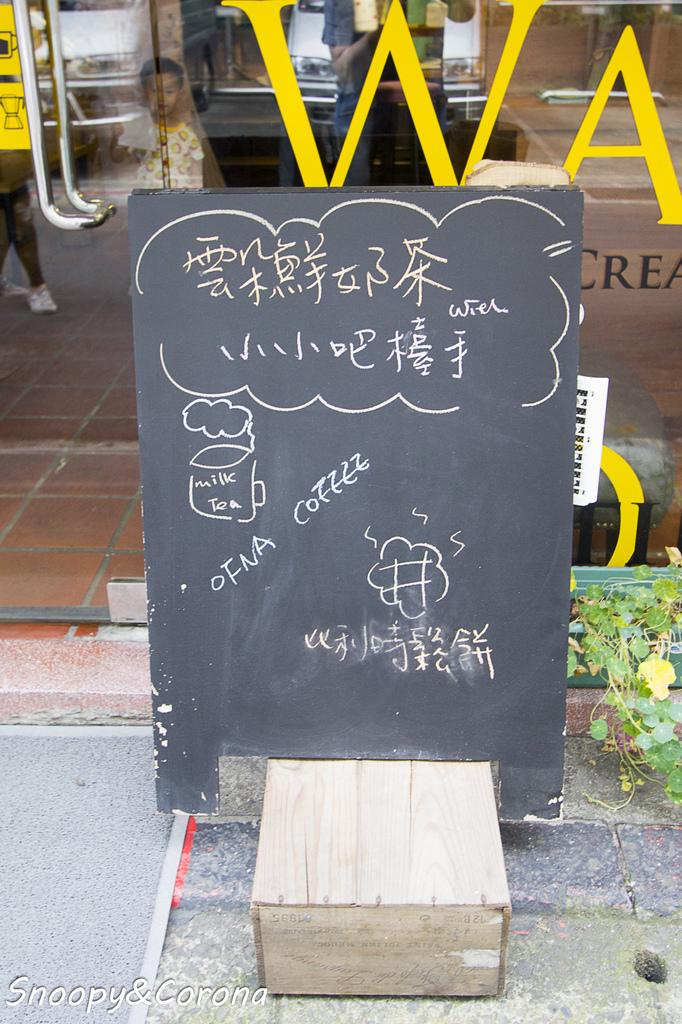 WA
CREA
雲朵鮮奶茶
with
小小吧檯手
milk
Tea
OFNA COFFEE
比利時鬆餅
D
Snoopy&Corona